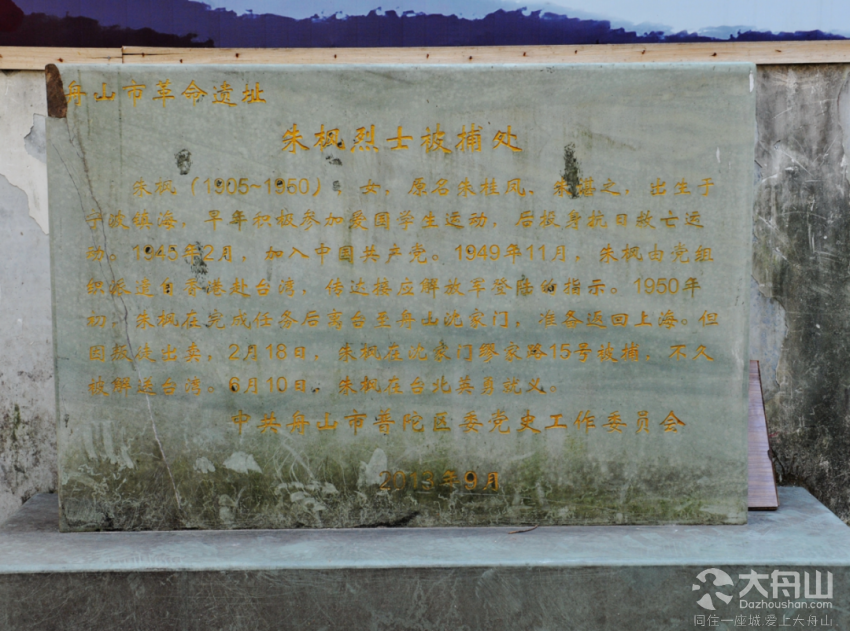 舟山市革命遗址
朱枫烈士被捕处
朱枫（1905~1950），女，原名朱桂凤、朱谌之，出生于
宁波镇海，早年积极参加爱国学生运动，后投身抗日救亡运
动。1945年2月，加入中国共产党。1949年11月，朱枫由党组
织派遣自香港赴台湾，传达接应解放军登陆的指示。1950年
初，朱枫在完成任务后离台至舟山沈家门，准备返回上海。但
因叛徒出卖，2月18日，朱枫在沈家门缪家路15号被捕，不久
被解送台湾。6月10日，朱枫在台北英勇就义。
中共舟山市普陀区委党史工作委员会
2013年9月
大舟山
Dazhoushan.com
同住一座城.爱上大舟山